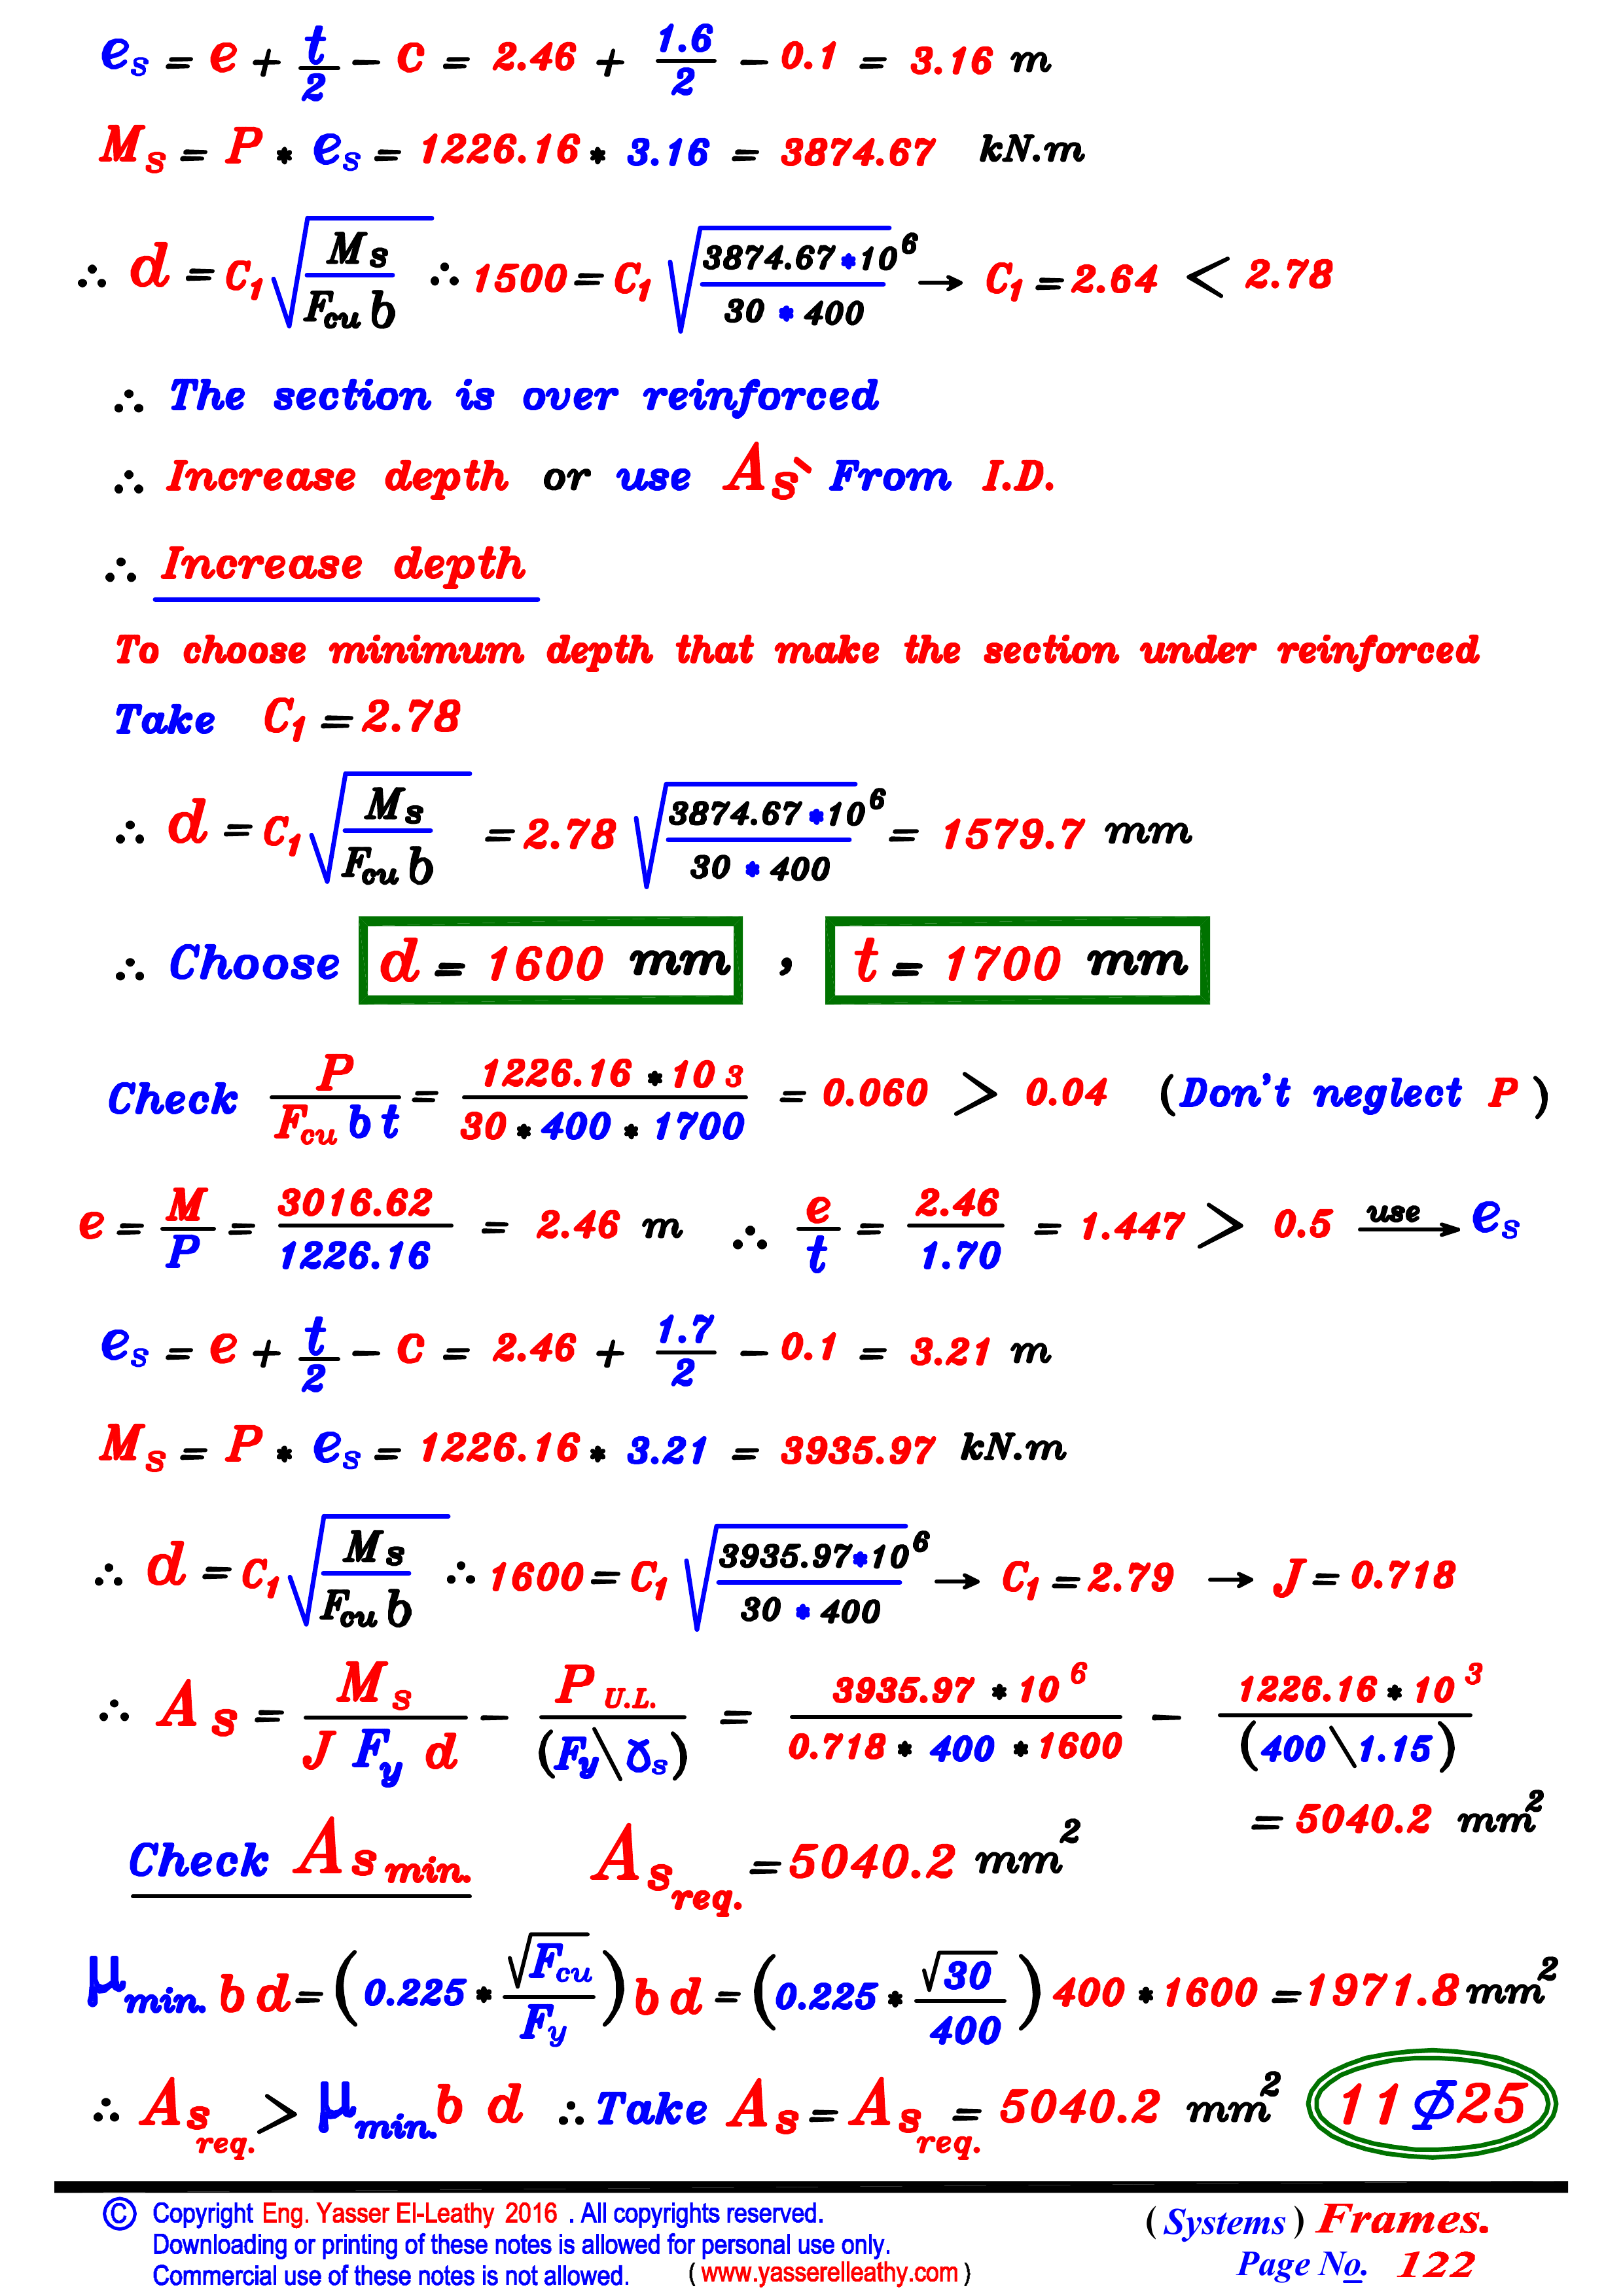 es = e + t/2 - c = 2.46 + 1.6/2 - 0.1 = 3.16 m
Ms = P * es = 1226.16 * 3.16 = 3874.67 kN.m
∴ d = C1 √(Ms / Fcu b) ∴ 1500 = C1 √(3874.67*10^6 / 30 * 400) → C1 = 2.64 < 2.78
∴ The section is over reinforced
∴ Increase depth or use As` From I.D.
∴ Increase depth
To choose minimum depth that make the section under reinforced
Take C1 = 2.78
∴ d = C1 √(Ms / Fcu b) = 2.78 √(3874.67*10^6 / 30 * 400) = 1579.7 mm
∴ Choose d = 1600 mm , t = 1700 mm
Check P / Fcu b t = 1226.16 * 10^3 / 30 * 400 * 1700 = 0.060 > 0.04 (Don't neglect P)
e = M/P = 3016.62 / 1226.16 = 2.46 m ∴ e/t = 2.46 / 1.70 = 1.447 > 0.5 use → es
es = e + t/2 - c = 2.46 + 1.7/2 - 0.1 = 3.21 m
Ms = P * es = 1226.16 * 3.21 = 3935.97 kN.m
∴ d = C1 √(Ms / Fcu b) ∴ 1600 = C1 √(3935.97*10^6 / 30 * 400) → C1 = 2.79 → J = 0.718
∴ As = Ms / J Fy d - P U.L. / (Fy\γs) = 3935.97 * 10^6 / 0.718 * 400 * 1600 - 1226.16 * 10^3 / (400\1.15)
= 5040.2 mm²
Check As min. As req. = 5040.2 mm²
μ min. b d = (0.225 * √Fcu / Fy) b d = (0.225 * √30 / 400) 400 * 1600 = 1971.8 mm²
∴ As req. > μ min. b d ∴ Take As = As req. = 5040.2 mm² 11 Φ 25
© Copyright Eng. Yasser El-Leathy 2016 . All copyrights reserved.
Downloading or printing of these notes is allowed for personal use only.
Commercial use of these notes is not allowed. ( www.yasserelleathy.com )
(Systems) Frames.
Page No. 122